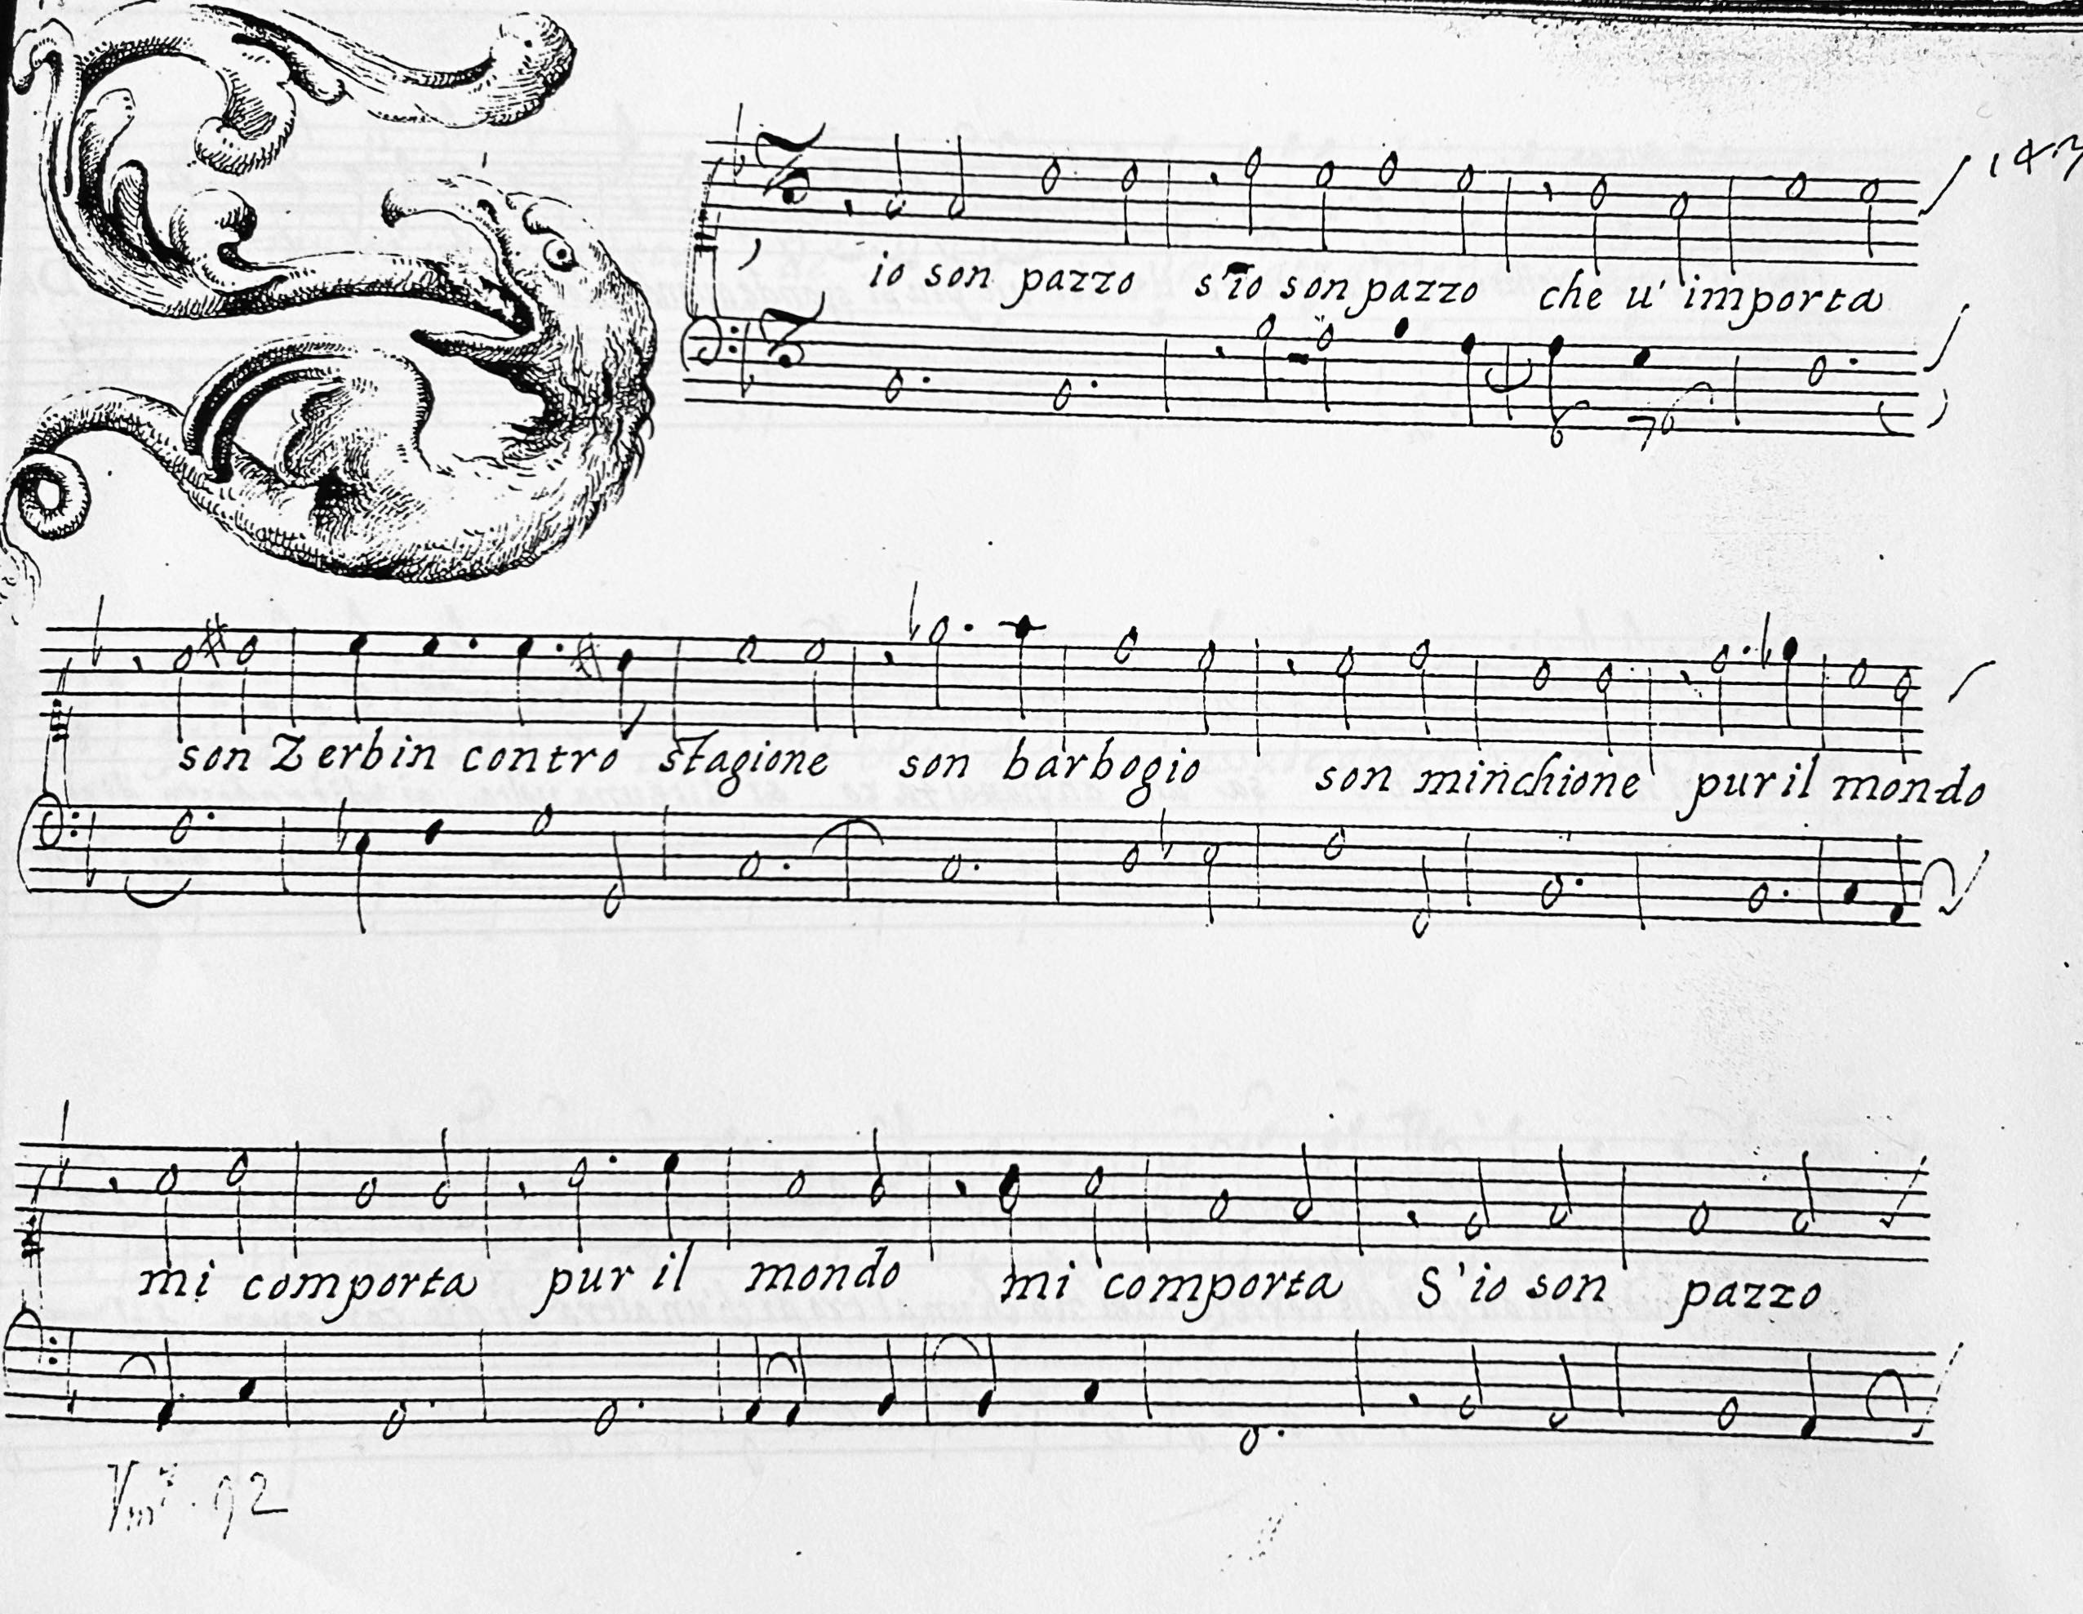 147
io son pazzo s'io son pazzo che u' importa
6 76
son Zerbin contro stagione son barbogio son minchione pur il mondo
mi comporta pur il mondo mi comporta S'io son pazzo
Vm⁷. 92